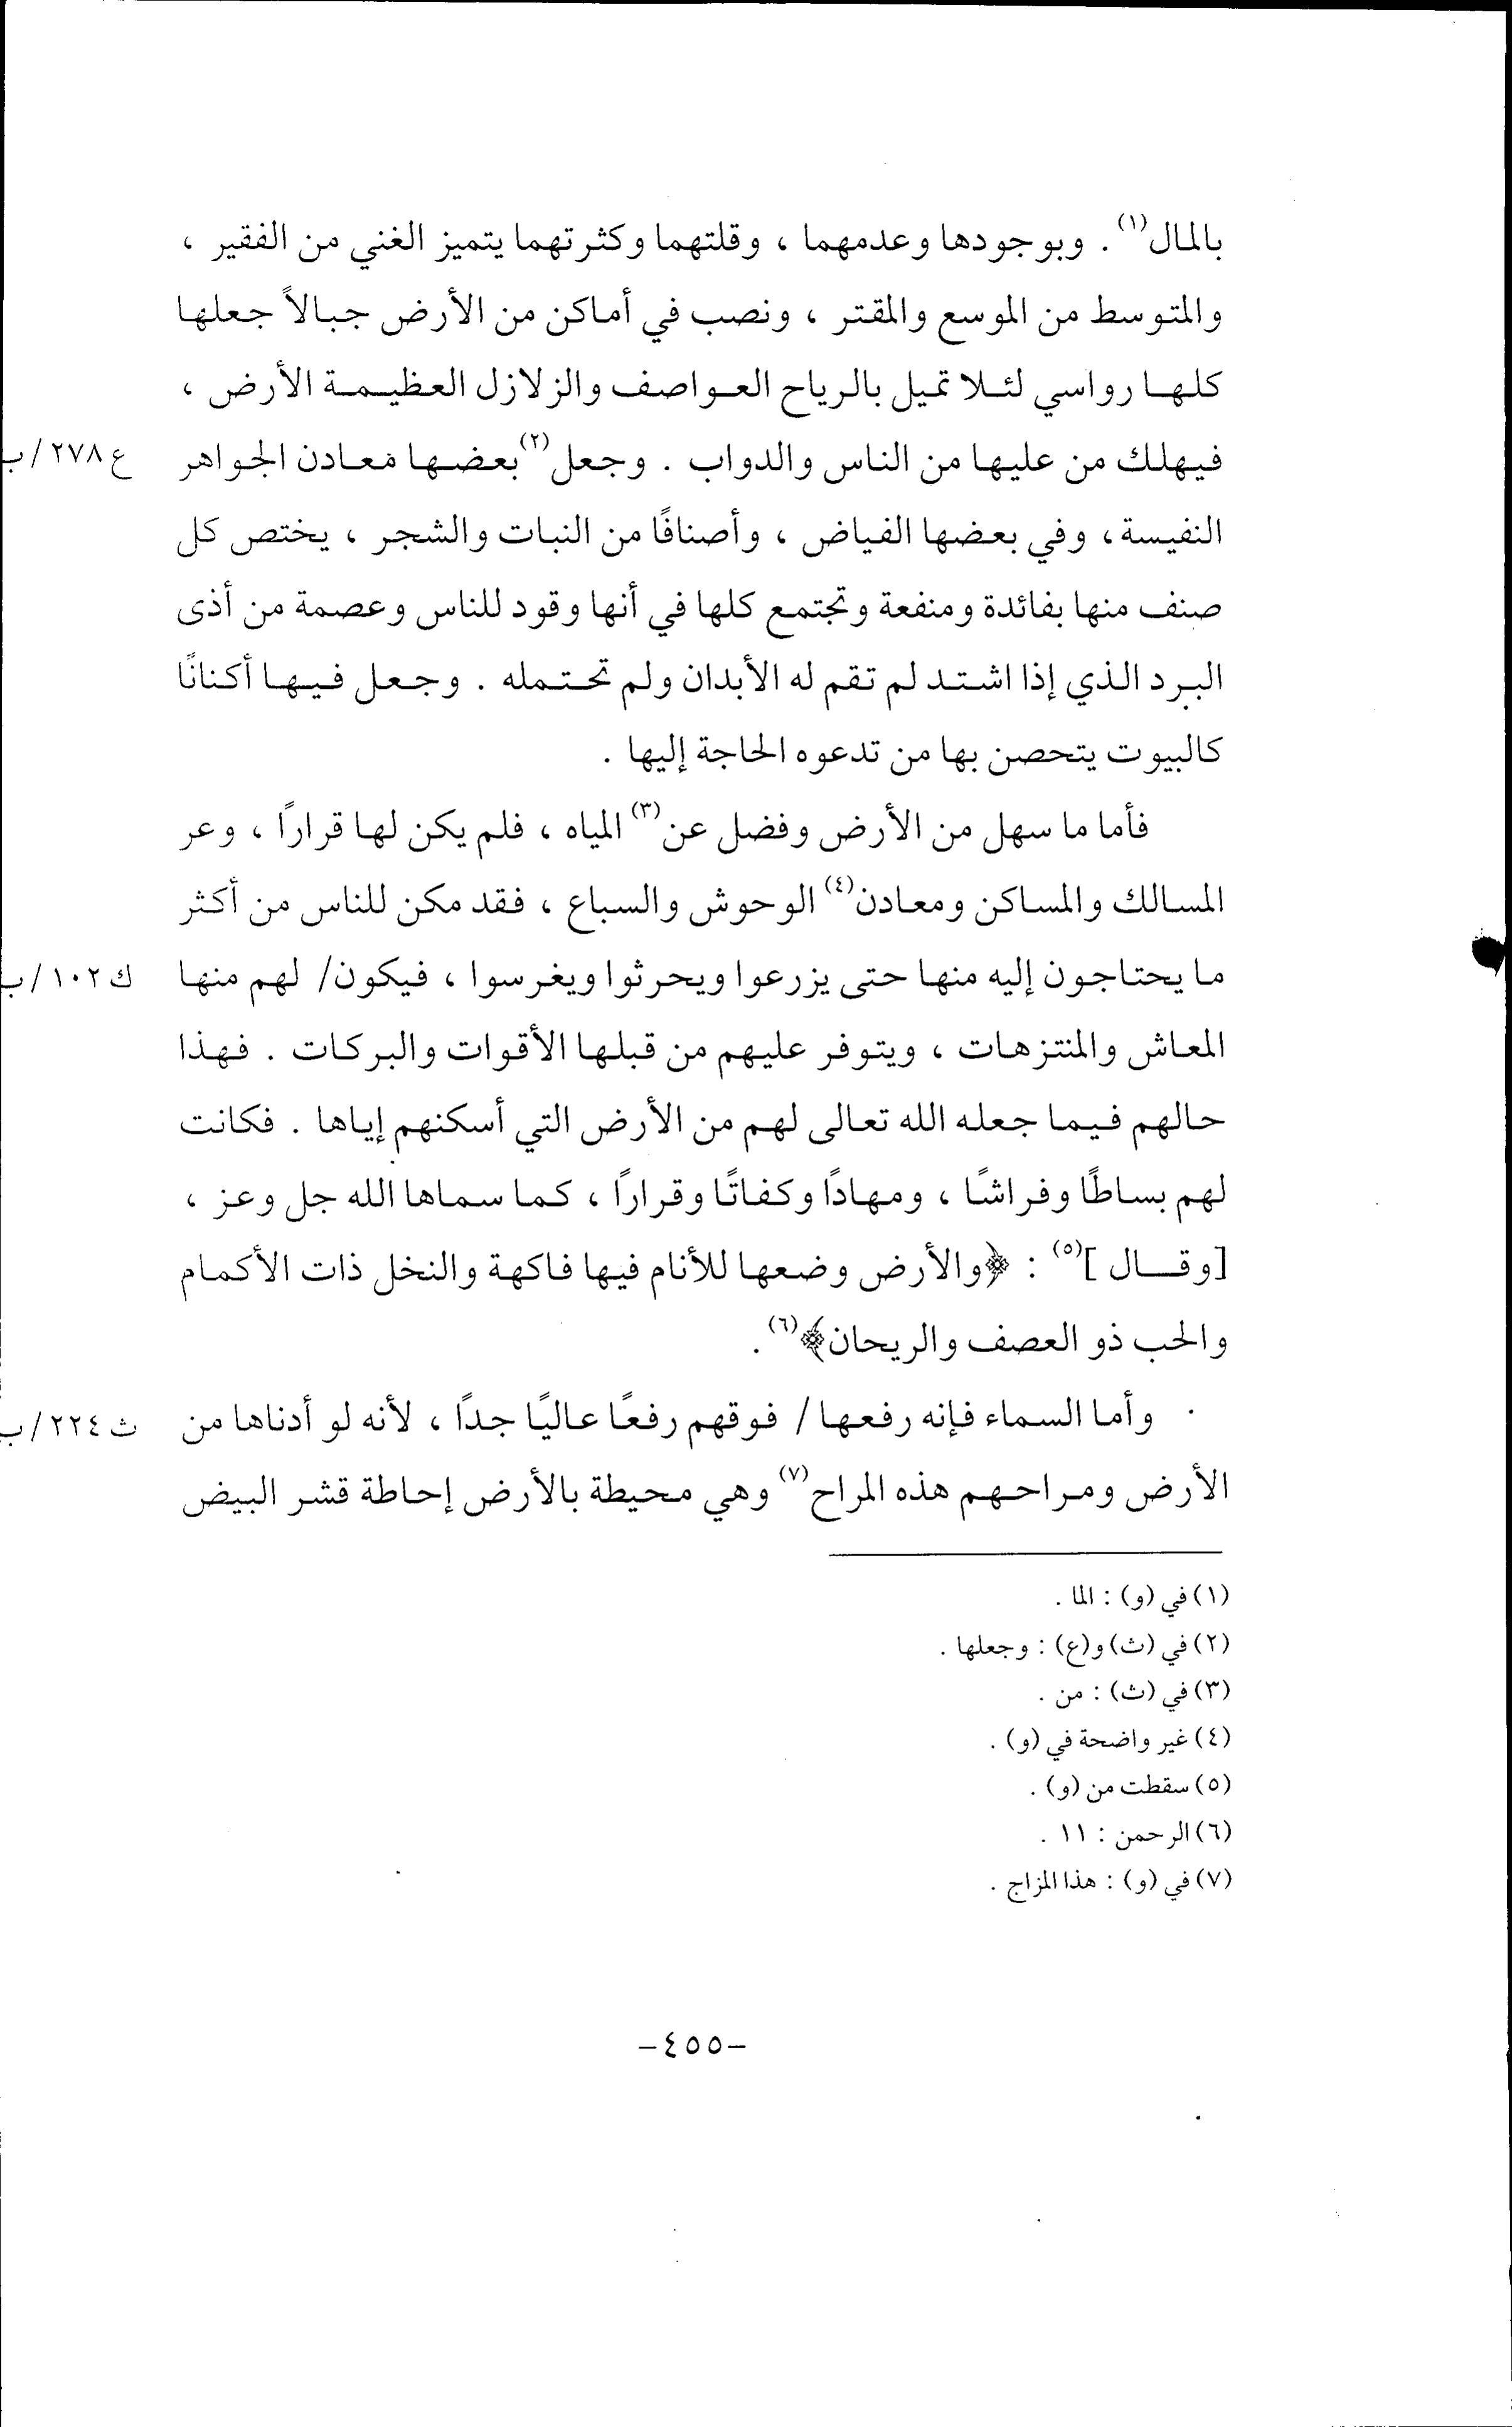 بالمال(١) . وبوجودها وعدمهما ، وقلتهما وكثرتهما يتميز الغني من الفقير ،
والمتوسط من الموسع والمقتر ، ونصب في أماكن من الأرض جبالاً جعلها
كلها رواسي لئلا تميل بالرياح العواصف والزلازل العظيمة الأرض ،
فيهلك من عليها من الناس والدواب . وجعل(٢) بعضها معادن الجواهر ع ٢٧٨/ب
النفيسة ، وفي بعضها الفياض ، وأصنافًا من النبات والشجر ، يختص كل
صنف منها بفائدة ومنفعة وتجتمع كلها في أنها وقود للناس وعصمة من أذى
البرد الذي إذا اشتد لم تقم له الأبدان ولم تحتمله . وجعل فيها أكنانًا
كالبيوت يتحصن بها من تدعوه الحاجة إليها .
فأما ما سهل من الأرض وفضل عن(٣) المياه ، فلم يكن لها قرارًا ، وعر
المسالك والمساكن ومعادن(٤) الوحوش والسباع ، فقد مكن للناس من أكثر
ما يحتاجون إليه منها حتى يزرعوا ويحرثوا ويغرسوا ، فيكون/ لهم منها ك ١٠٢/ب
المعاش والمنتزهات ، ويتوفر عليهم من قبلها الأقوات والبركات . فهذا
حالهم فيما جعله الله تعالى لهم من الأرض التي أسكنهم إياها . فكانت
لهم بساطًا وفراشًا ، ومهادًا وكفاتًا وقرارًا ، كما سماها الله جل وعز ،
[وقال](٥) : ﴿والأرض وضعها للأنام فيها فاكهة والنخل ذات الأكمام
والحب ذو العصف والريحان﴾(٦) .
وأما السماء فإنه رفعها/ فوقهم رفعًا عاليًا جدًا ، لأنه لو أدناها من ث ٢٢٤/ب
الأرض ومراحهم هذه المراح(٧) وهي محيطة بالأرض إحاطة قشر البيض
(١) في (و) : الما .
(٢) في (ث) و(ع) : وجعلها .
(٣) في (ث) : من .
(٤) غير واضحة في (و) .
(٥) سقطت من (و) .
(٦) الرحمن : ١١ .
(٧) في (و) : هذا المزاج .
-٤٥٥-